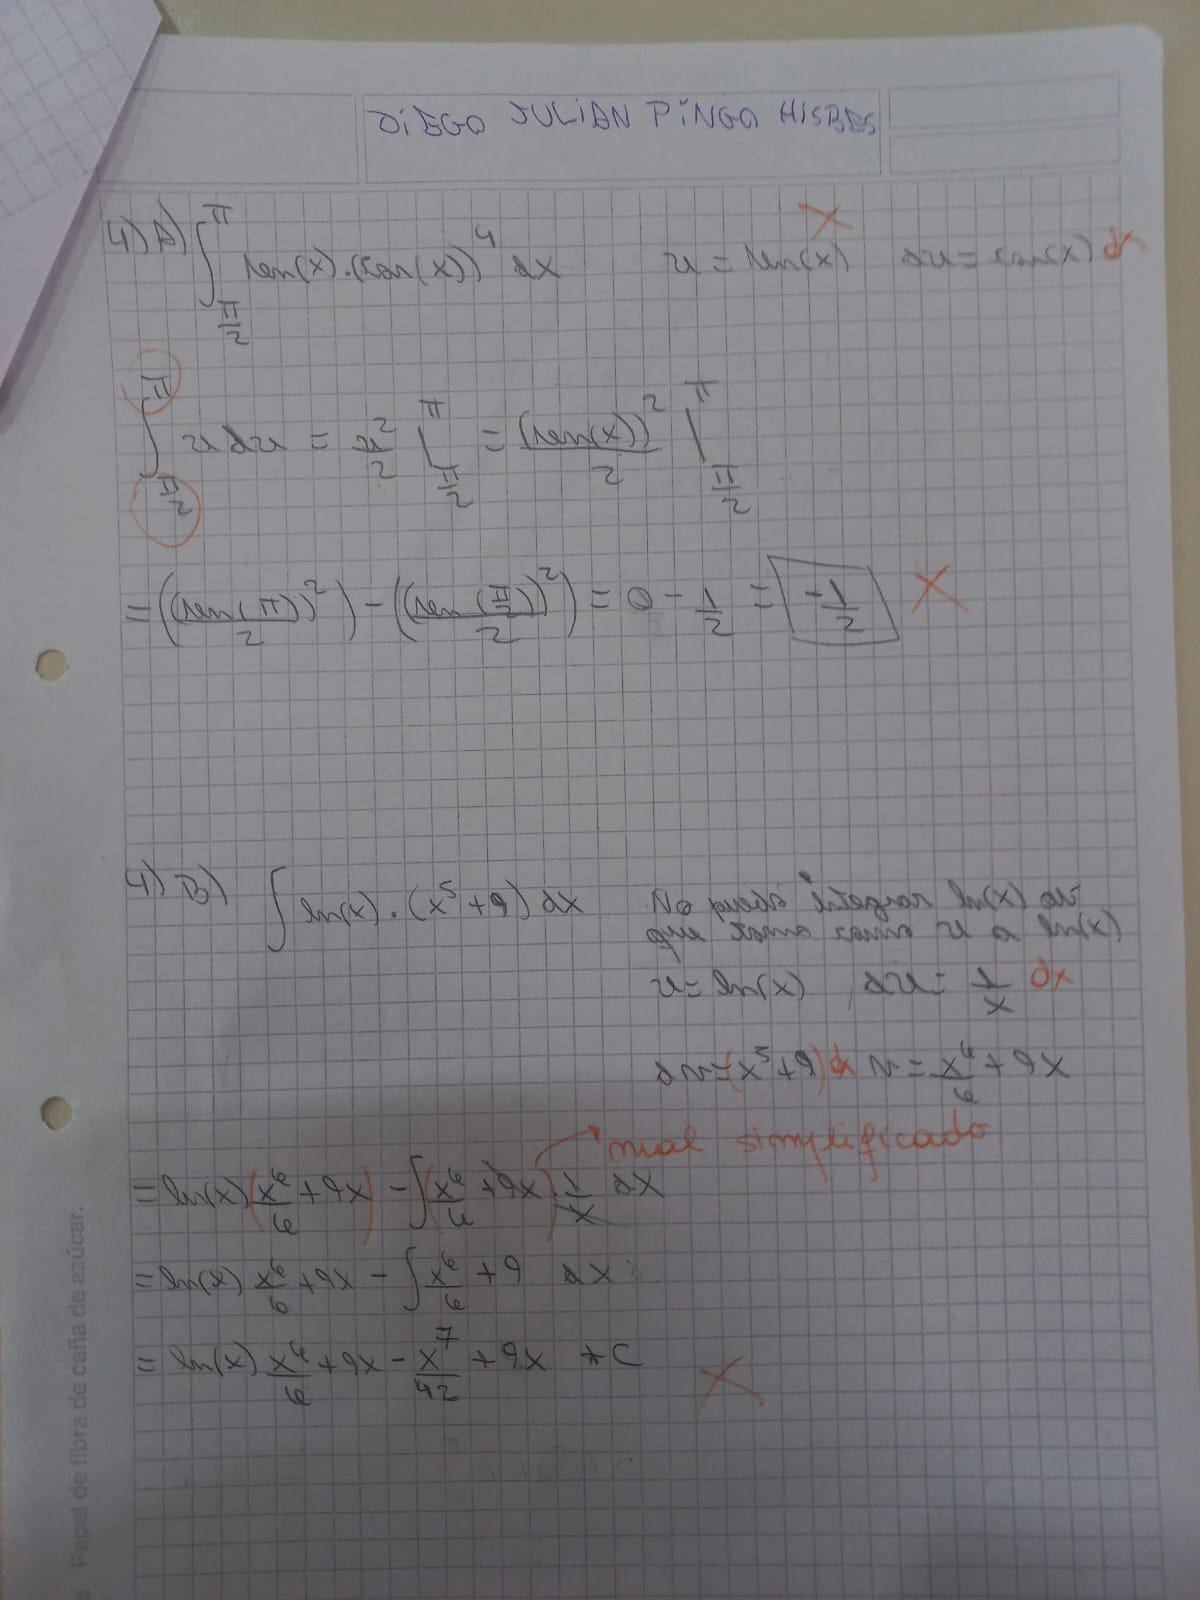 DIEGO JULIAN PINGO HISBES
4) A) ∫_{π/2}^{π} sen(x).(cos(x))^4 dx   u = sen(x)   du = cos(x) dx
∫_{π/2}^{π} u du = u²/2 |_{π/2}^{π} = (sen(x))²/2 |_{π/2}^{π}
= ((sen(π))²/2) - ((sen(π/2))²/2) = 0 - 1/2 = -1/2
4) B) ∫ ln(x) . (x^5 + 9) dx   No puedo integrar ln(x) así
que tomo como u a ln(x)
u = ln(x)   du = 1/x dx
dv = (x^5 + 9) dx   v = x^6/6 + 9x
mal simplificado
= ln(x) (x^6/6 + 9x) - ∫ (x^6/6 + 9x) 1/x dx
= ln(x) x^6/6 + 9x - ∫ x^6/6 + 9 dx
= ln(x) x^6/6 + 9x - x^7/42 + 9x + C
Papel de fibra de caña de azúcar.